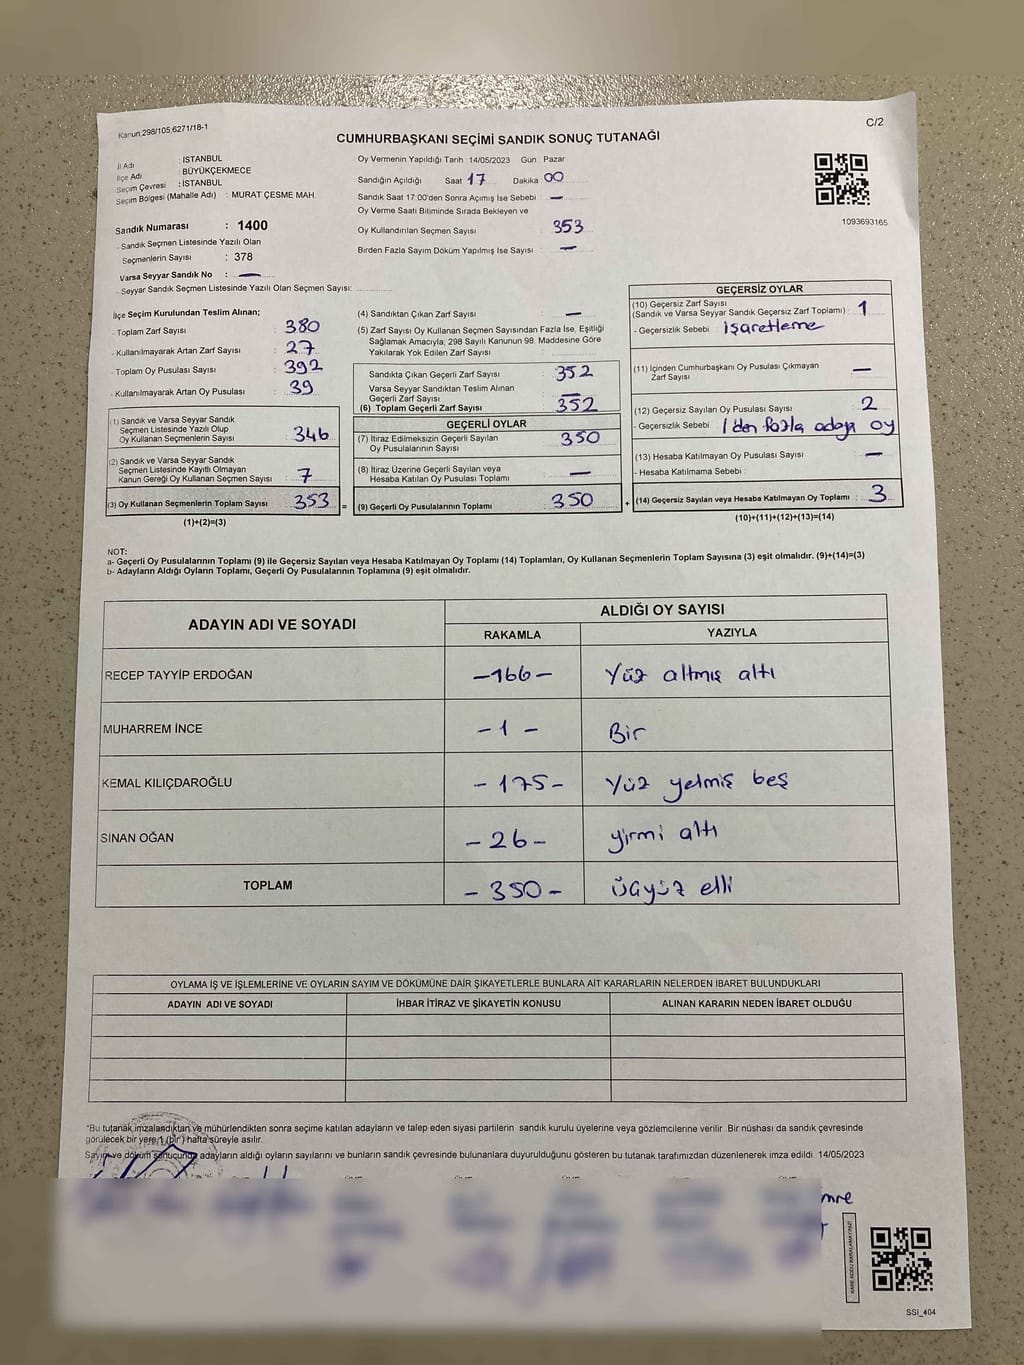 Kanun:298/105,6271/18-1
C/2
CUMHURBAŞKANI SEÇİMİ SANDIK SONUÇ TUTANAĞI
İl Adı : İSTANBUL
İlçe Adı : BÜYÜKÇEKMECE
Seçim Çevresi : İSTANBUL
Seçim Bölgesi (Mahalle Adı) : MURAT ÇESME MAH.
Sandık Numarası : 1400
- Sandık Seçmen Listesinde Yazılı Olan
Seçmenlerin Sayısı : 378
Varsa Seyyar Sandık No : —
- Seyyar Sandık Seçmen Listesinde Yazılı Olan Seçmen Sayısı:
Oy Vermenin Yapıldığı Tarih :14/05/2023 Gün Pazar
Sandığın Açıldığı Saat 17 Dakika 00
Sandık Saat 17:00'den Sonra Açımış İse Sebebi : —
Oy Verme Saati Bitiminde Sırada Bekleyen ve
Oy Kullandırılan Seçmen Sayısı : 353
Birden Fazla Sayım Döküm Yapılmış İse Sayısı : —
1093693165
İlçe Seçim Kurulundan Teslim Alınan;
- Toplam Zarf Sayısı : 380
- Kullanılmayarak Artan Zarf Sayısı : 27
- Toplam Oy Pusulası Sayısı : 392
- Kullanılmayarak Artan Oy Pusulası : 39
(1) Sandık ve Varsa Seyyar Sandık
Seçmen Listesinde Yazılı Olup
Oy Kullanan Seçmenlerin Sayısı : 346
(2) Sandık ve Varsa Seyyar Sandık
Seçmen Listesinde Kayıtlı Olmayan
Kanun Gereği Oy Kullanan Seçmen Sayısı : 7
(3) Oy Kullanan Seçmenlerin Toplam Sayısı : 353
(1)+(2)=(3)
=
(4) Sandıktan Çıkan Zarf Sayısı : —
(5) Zarf Sayısı Oy Kullanan Seçmen Sayısından Fazla İse, Eşitliği
Sağlamak Amacıyla; 298 Sayılı Kanunun 98. Maddesine Göre
Yakılarak Yok Edilen Zarf Sayısı :
Sandıkta Çıkan Geçerli Zarf Sayısı : 352
Varsa Seyyar Sandıktan Teslim Alınan
Geçerli Zarf Sayısı : —
(6) Toplam Geçerli Zarf Sayısı : 352
GEÇERLİ OYLAR
(7) İtiraz Edilmeksizin Geçerli Sayılan
Oy Pusulalarının Sayısı : 350
(8) İtiraz Üzerine Geçerli Sayılan veya
Hesaba Katılan Oy Pusulası Toplamı : —
(9) Geçerli Oy Pusulalarının Toplamı : 350
+
GEÇERSİZ OYLAR
(10) Geçersiz Zarf Sayısı
(Sandık ve Varsa Seyyar Sandık Geçersiz Zarf Toplamı) : 1
- Geçersizlik Sebebi : işaretleme
(11) İçinden Cumhurbaşkanı Oy Pusulası Çıkmayan
Zarf Sayısı : —
(12) Geçersiz Sayılan Oy Pusulası Sayısı : 2
- Geçersizlik Sebebi : 1 den fazla adaya oy
(13) Hesaba Katılmayan Oy Pusulası Sayısı : —
- Hesaba Katılmama Sebebi :
(14) Geçersiz Sayılan veya Hesaba Katılmayan Oy Toplamı : 3
(10)+(11)+(12)+(13)=(14)
NOT:
a- Geçerli Oy Pusulalarının Toplamı (9) ile Geçersiz Sayılan veya Hesaba Katılmayan Oy Toplamı (14) Toplamları, Oy Kullanan Seçmenlerin Toplam Sayısına (3) eşit olmalıdır. (9)+(14)=(3)
b- Adayların Aldığı Oyların Toplamı, Geçerli Oy Pusulalarının Toplamına (9) eşit olmalıdır.
ADAYIN ADI VE SOYADI
ALDIĞI OY SAYISI
RAKAMLA YAZIYLA
RECEP TAYYİP ERDOĞAN -166- Yüz altmış altı
MUHARREM İNCE -1- Bir
KEMAL KILIÇDAROĞLU -175- Yüz yetmiş beş
SİNAN OĞAN -26- yirmi altı
TOPLAM -350- üçyüz elli
OYLAMA İŞ VE İŞLEMLERİNE VE OYLARIN SAYIM VE DÖKÜMÜNE DAİR ŞİKAYETLERLE BUNLARA AİT KARARLARIN NELERDEN İBARET BULUNDUKLARI
ADAYIN ADI VE SOYADI İHBAR İTİRAZ VE ŞİKAYETİN KONUSU ALINAN KARARIN NEDEN İBARET OLDUĞU
*Bu tutanak imzalandıktan ve mühürlendikten sonra seçime katılan adayların ve talep eden siyasi partilerin sandık kurulu üyelerine veya gözlemcilerine verilir. Bir nüshası da sandık çevresinde
görülecek bir yere 1 (bir) hafta süreyle asılır.
Sayım ve döküm sonucunda adayların aldığı oyların sayılarını ve bunların sandık çevresinde bulunanlara duyurulduğunu gösteren bu tutanak tarafımızdan düzenlenerek imza edildi. 14/05/2023
KARE KODU KARALAMAYINIZ!
SSI_404